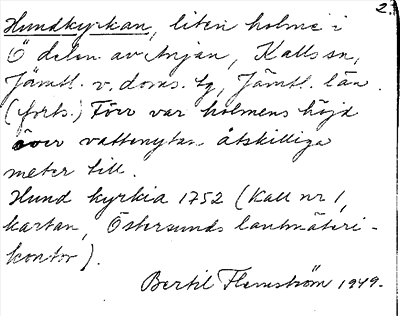 2.
Hundkyrkan, liten holme i
Ö delen av Anjan, Kalls sn,
Jämtl. v. doms. tg, Jämtl. län.
(forts.) Förr var holmens höjd
över vattenytan åtskilliga
meter till.
Hund kyrkia 1752 (Kall nr 1,
kartan, Östersunds lantmäteri-
kontor).
Bertil Flemström 1949.